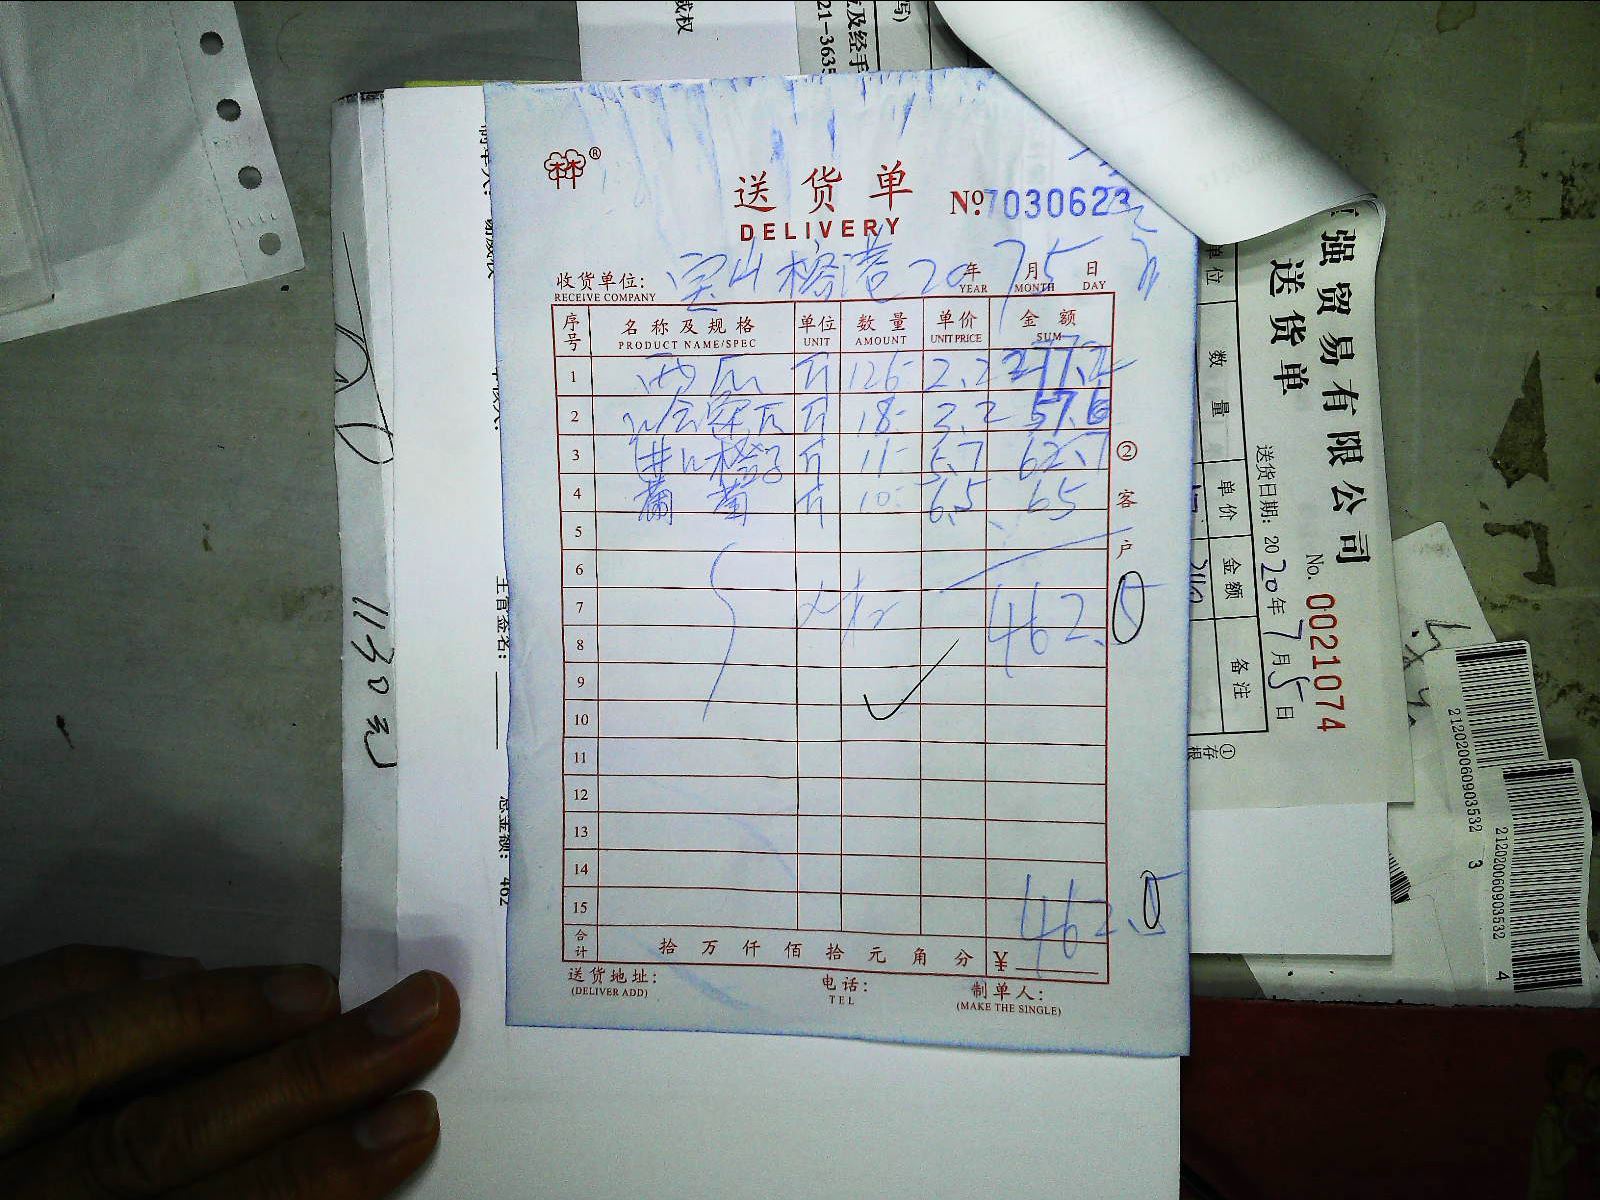 送货单
DELIVERY
No.7030623
收货单位: 宝山榕港 20年7月5日
RECEIVE COMPANY YEAR MONTH DAY
序号 名称及规格 单位 数量 单价 金额
PRODUCT NAME/SPEC UNIT AMOUNT UNIT PRICE SUM
1 西瓜 斤 126- 2.2 277.2
2 哈密瓜 斤 18- 3.2 57.6
3 进口橙子 斤 11- 5.7 62.7
4 葡萄 斤 10- 6.5 65
5
6
7 462.5
8
9
10
11
12
13
14
15 462.5
合计 拾万仟佰拾元角分 ¥
送货地址: 电话: 制单人:
(DELIVER ADD) TEL (MAKE THE SINGLE)
② 客户
1130元
主管签名:
总金额: 462
强贸易有限公司
送货单
No. 0021074
送货日期: 2020年7月5日
单位 数量 单价 金额 备注
①存根
21-3635
及经手
212020060903532 3
212020060903532 4